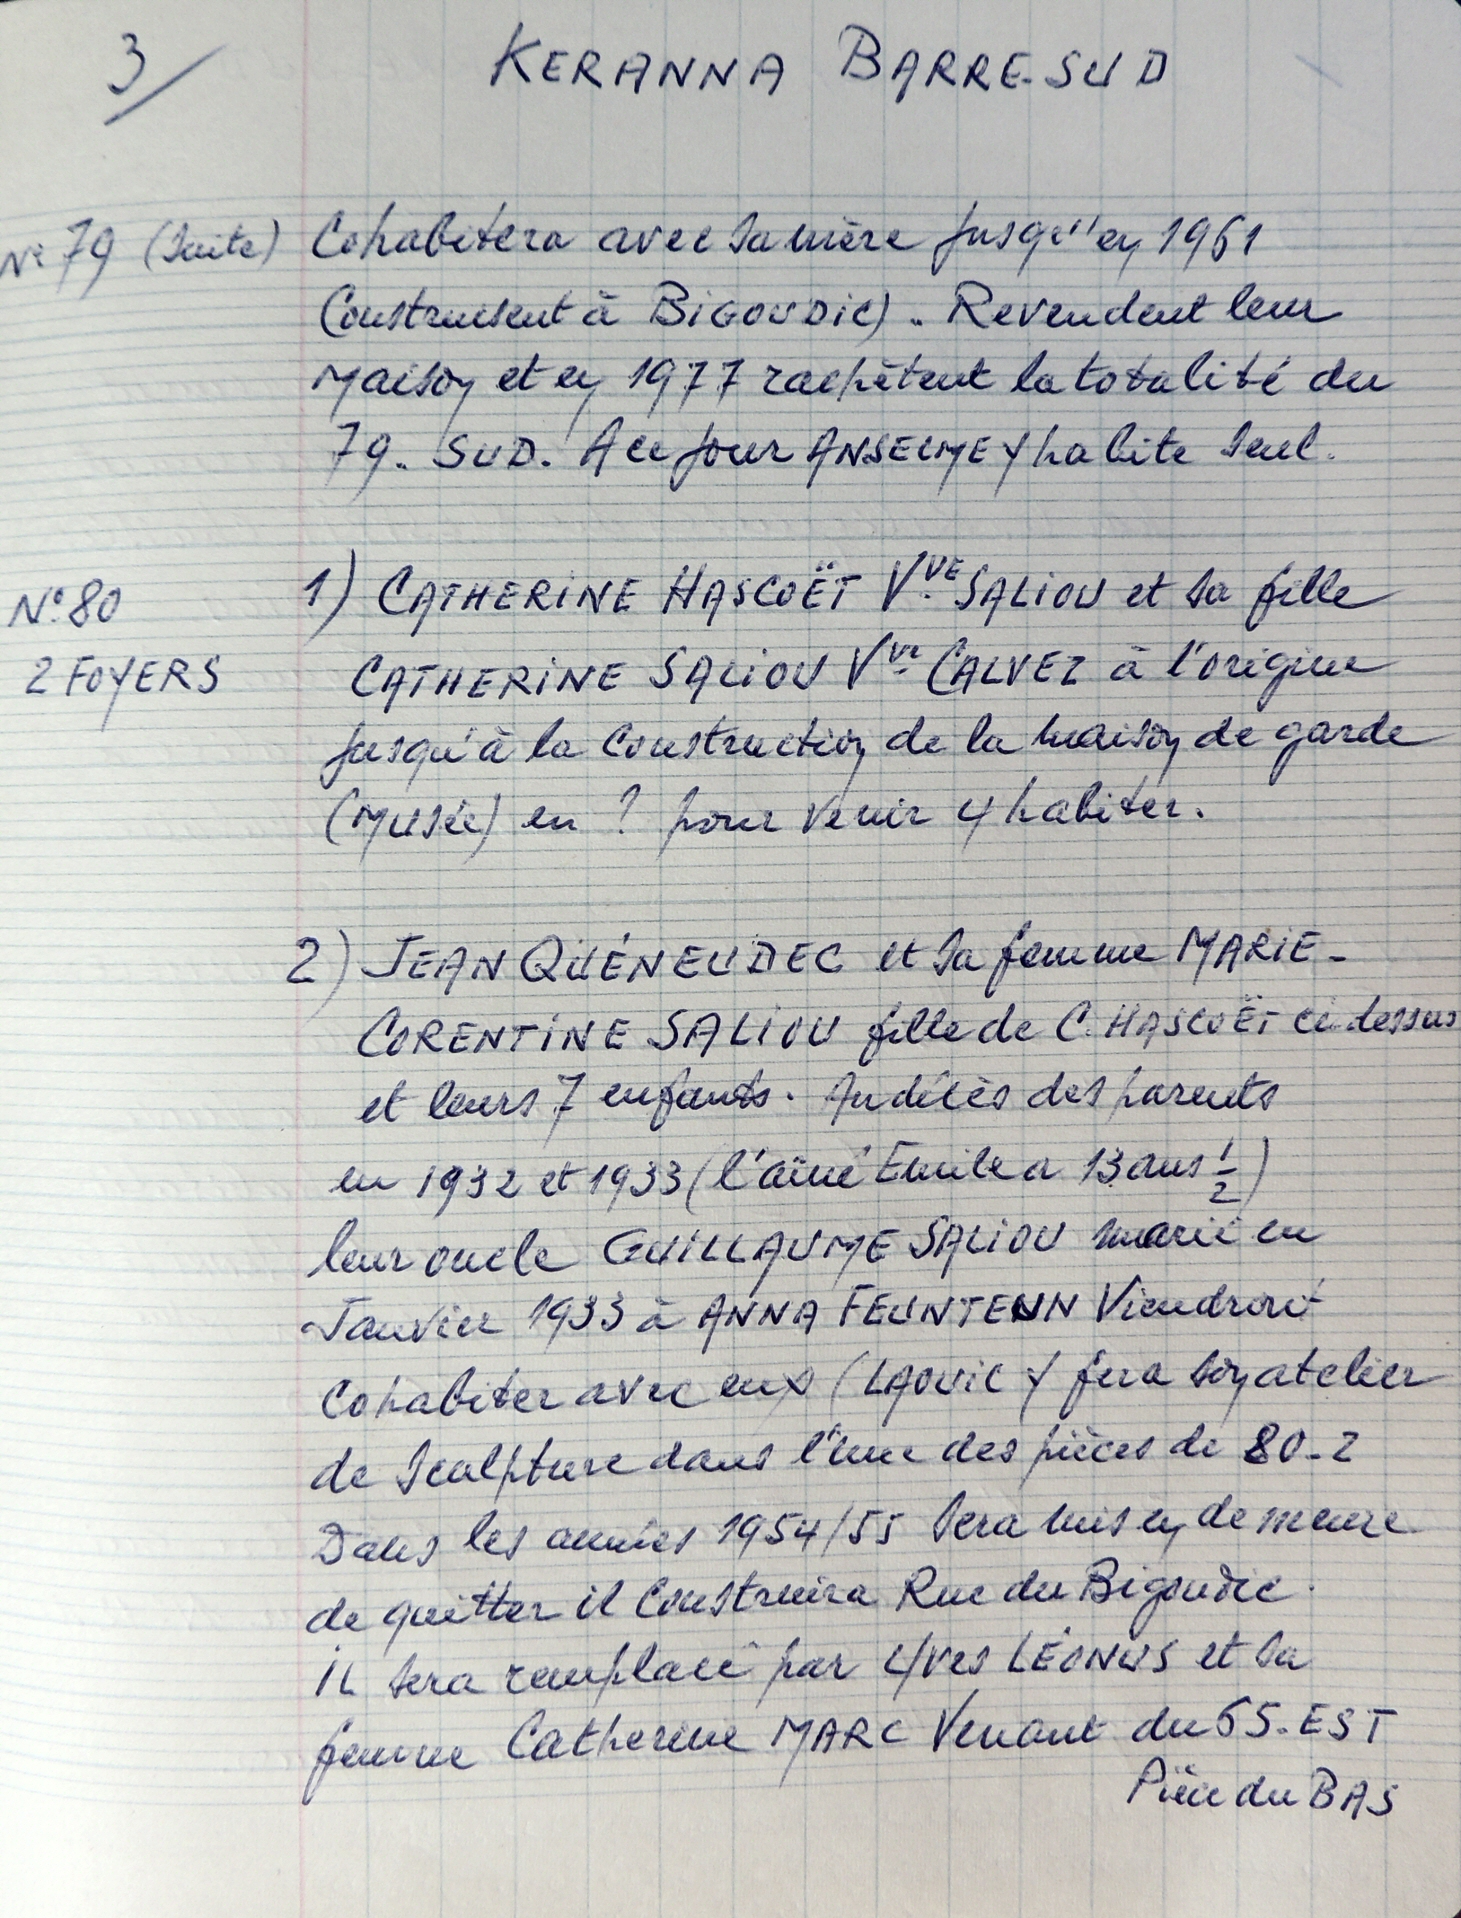 3/
KERANNA BARRE-SUD
N° 79 (Suite) Cohabitera avec sa mère jusqu'en 1961
(Construisent à BIGOUDIC). Revendent leur
maison et en 1977 rachètent la totalité du
79. SUD. A ce jour ANSELME Y habite seul.
N° 80 1) CATHERINE HASCOËT Vve SALIOU et sa fille
2 FOYERS CATHERINE SALIOU Vve CALVEZ à l'origine
jusqu'à la construction de la maison de garde
(Musée) en ? pour venir y habiter.
2) JEAN QUÉNEUDEC et sa femme MARIE-
CORENTINE SALIOU fille de C. HASCOËT ci dessus
et leurs 7 enfants. Au décès des parents
en 1932 et 1933 (l'aîné Emile a 13 ans 1/2)
leur oncle GUILLAUME SALIOU marié en
Janvier 1933 à ANNA FEUNTEUN Viendront
Cohabiter avec eux (LAOUIC Y fera son atelier
de Sculpture dans l'une des pièces de 80-2
Dans les années 1954/55 Sera mis en demeure
de quitter il Construira Rue du Bigoudic.
IL sera remplacé par Yves LÉONUS et sa
femme Catherine MARC Venant du 65-EST
Pièce du BAS